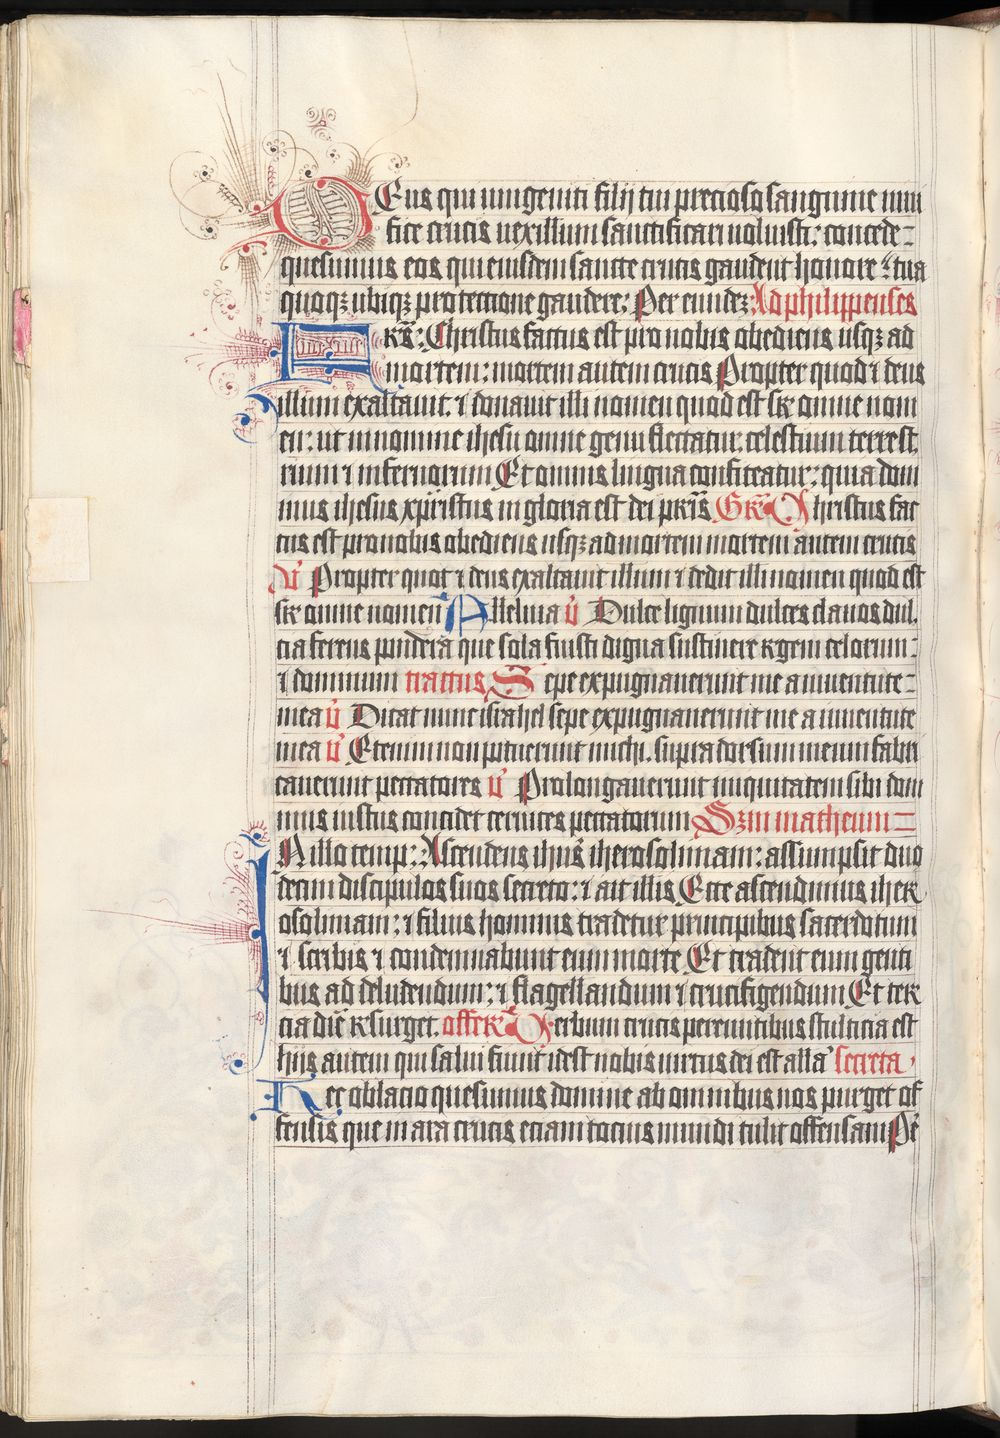 DEus qui unigeniti filij tui precioso sanguine vivi
fice crucis vexillum sanctificari voluisti: concede
quesumus eos qui eiusdem sancte crucis gaudent honore tua
quoqʒ ubiqʒ protectione gaudere: Per eundeʒ Ad philippenses
FRēs: Christus factus est pro nobis obediens usqʒ ad
mortem: mortem autem crucis Propter quod ⁊ deus
illum exaltavit: ⁊ donavit illi nomen quod est sr omne nom
en: ut in nomine ihesu omne genu flectatur: celestium terrest
rium ⁊ infernorum Et omnis lingua confiteatur: quia dom
inus ihesus xpristus in gloria est dei pr̄is Gr̄ Christus fac
tus est pro nobis obediens usqʒ ad mortem mortem autem crucis
v̄ Propter quot ⁊ deus exaltavit illum ⁊ dedit illi nomen quod est
sr omne nomen Alleluia v̄ Dulce lignum dulces clavos dul
cia ferens pondera que sola fuisti digna sustinere regem celorum:
⁊ dominum tractus Sepe expugnaverunt me a iuventute
mea v̄ Dicat nunc israhel sepe expugnaverunt me a iuventute
mea v̄ Etenim non potuerunt michi. supra dorsum meum fabri
caverunt peccatores v̄ Prolongaverunt iniquitatem sibi dom
inus iustus concidet cervices peccatorum Sʒm matheum
IN illo temp: Ascendens ihūs iherosolimam: assumpsit duo
decim discipulos suos secreto: ⁊ ait illis Ecce ascendimus iher
osolimam: ⁊ filius hominis tradetur principibus sacerdotum
⁊ scribis ⁊ condemnabunt eum morte Et tradent eum genti
bus ad deludendum: ⁊ flagellandum ⁊ crucifigendum Et ter
cia diē resurget. offer Verbum crucis pereuntibus stulticia est
hijs autem qui salvi fiunt idest nobis virtus dei est alla secreta
Hec oblacio quesumus domine ab omnibus nos purget of
fensis que in ara crucis eciam tocius mundi tulit offensam Pē